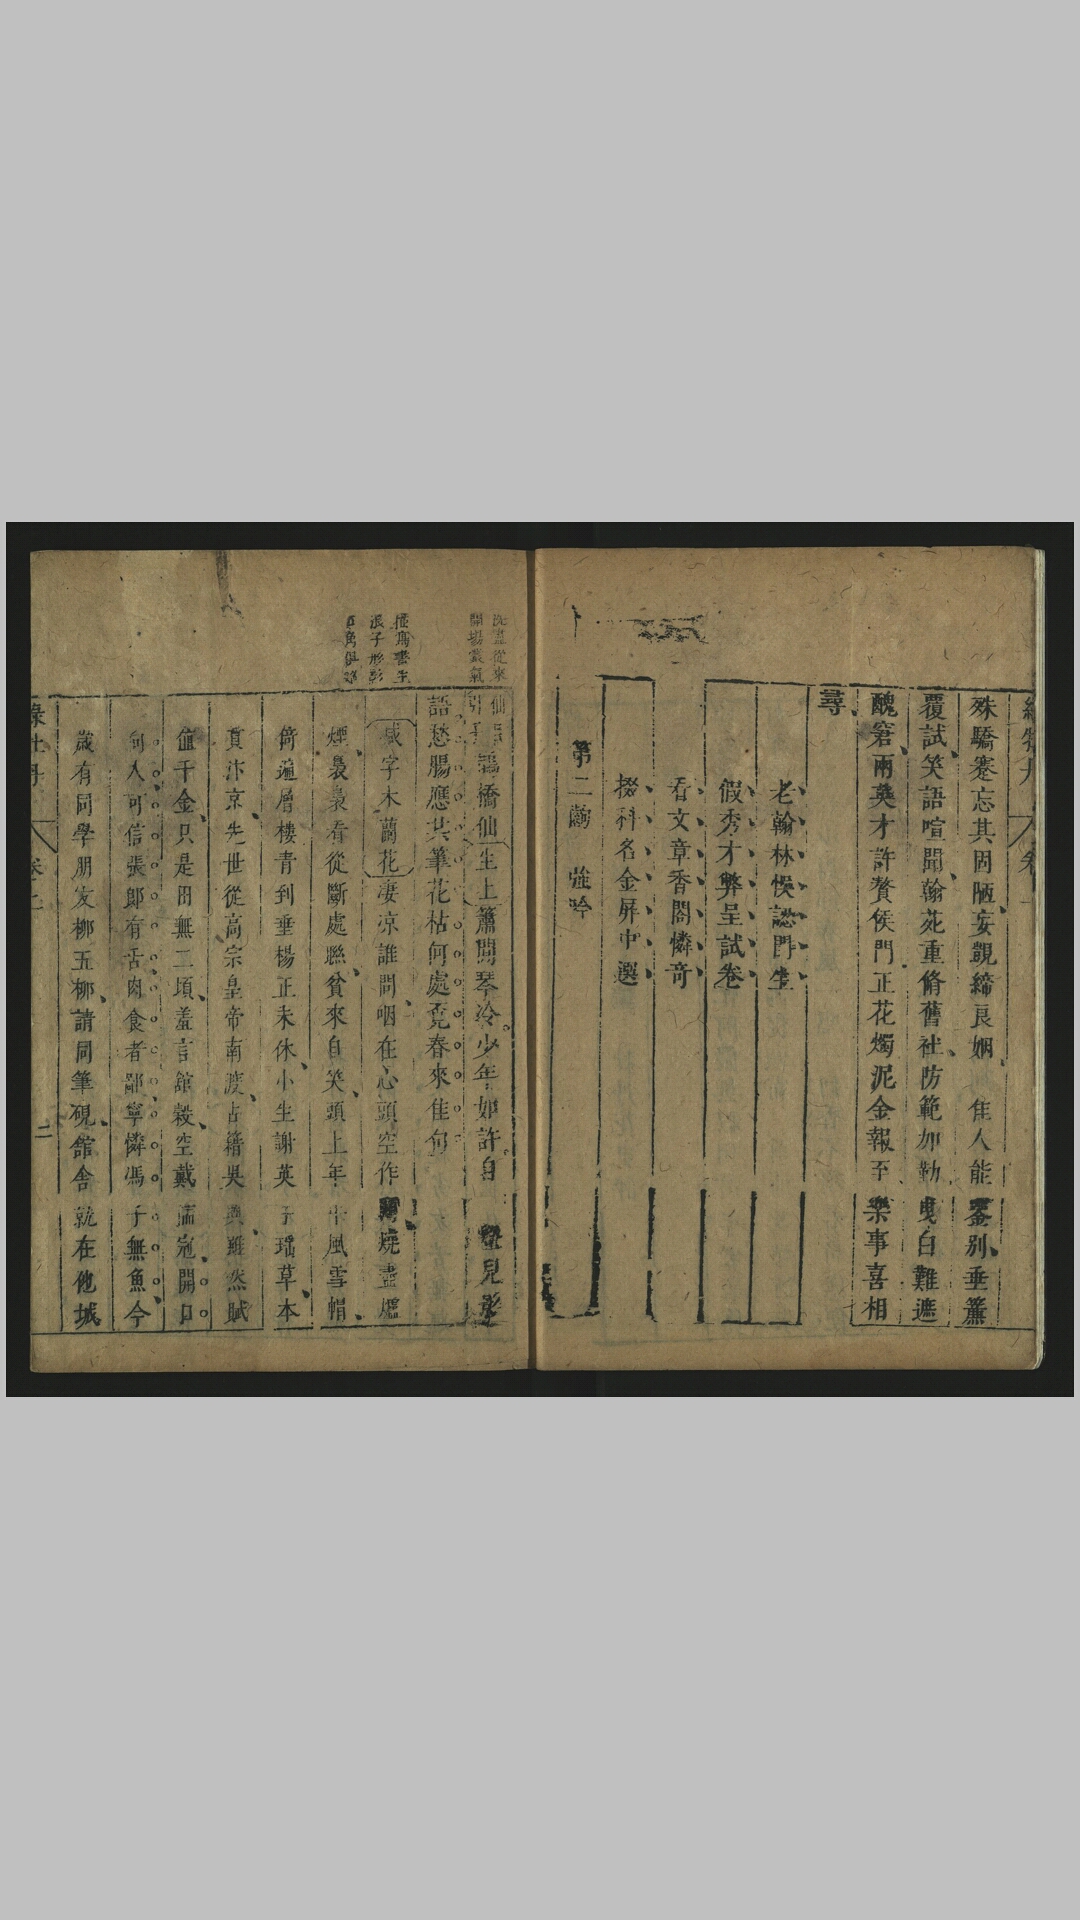 殊驕蹇忘其固陋妄覬締良姻佳人能鑒別垂簾
覆試笑語喧聞翰苑重脩舊社防範如勒曳白難遮
醜窘兩英才許贅侯門正花燭泥金報至樂事喜相
尋
老翰林悞認門生
假秀才弊呈試卷
看文章香閣憐奇
掇科名金屏中選
第二齣 強吟
仙
引 鵲橋仙生上簫閒琴冷少年如許自 形
語愁腸應共筆花枯何處覔春來佳句
減字木蘭花凄凉誰問咽在心頭空作 燒盡爐
煙裊裊看從斷處聯貧來自笑頭上年年風雪帽
倚遍層樓青到垂楊正未休小生謝英字瑤草本
貫汴京先世從高宗皇帝南渡占籍吳興雖然賦
値千金只是田無二頃羞言館穀空戴儒冠開口
向人可信張郞有舌肉食者鄙寧憐馮子無魚今
歲有同學朋友柳五柳請同筆硯舘舍就在他城
洗盡從來
開塲套氣
描寫書生
浪子形影
牡丹
卷上
二